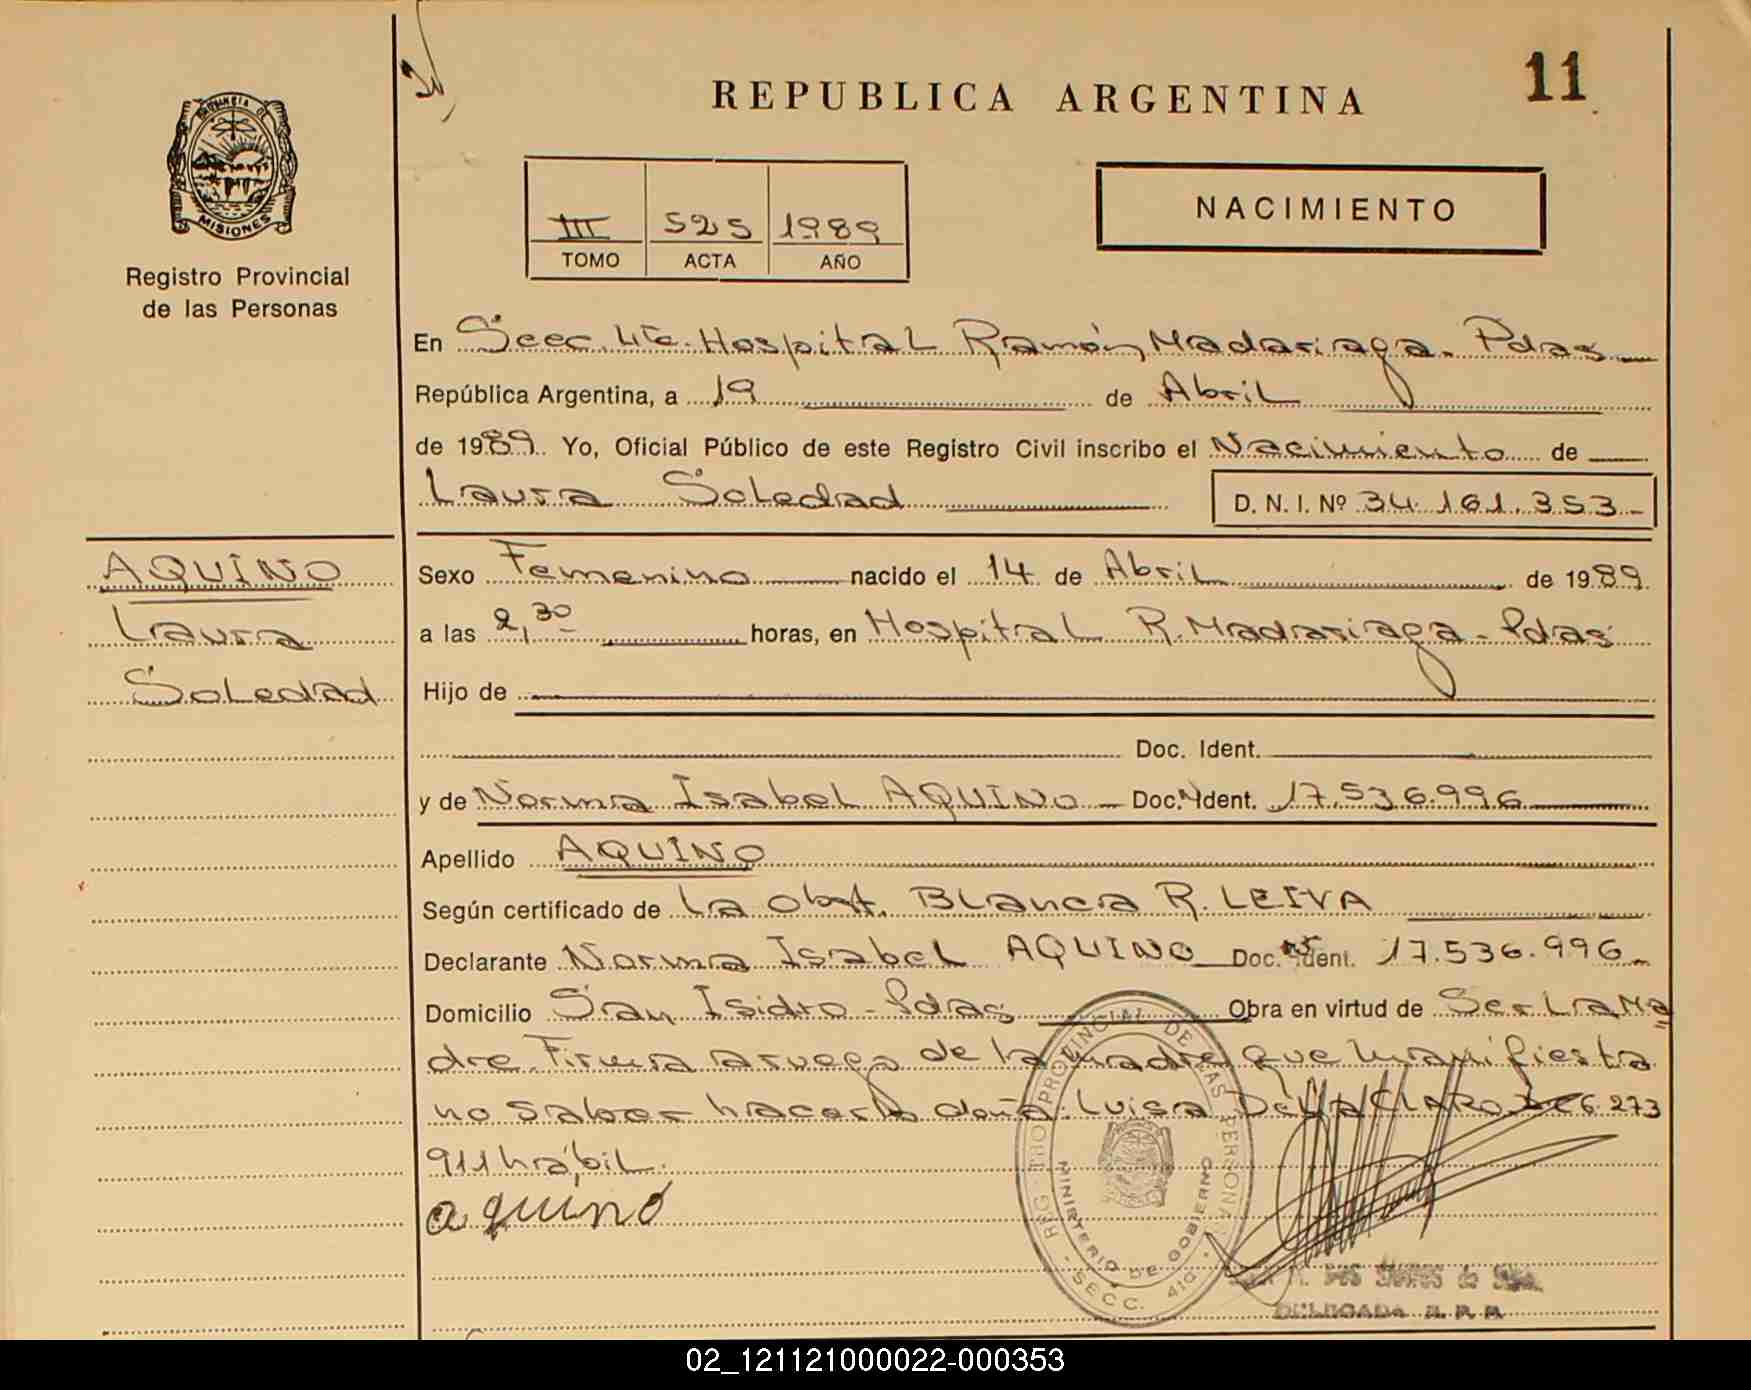 11
REPUBLICA ARGENTINA
PROVINCIA DE
MISIONES
Registro Provincial
de las Personas
NACIMIENTO
III 525 1989
TOMO ACTA AÑO
En Secc. 4ta. Hospital Ramón Madariaga. Pdas
República Argentina, a 19 de Abril
de 1989. Yo, Oficial Público de este Registro Civil inscribo el Nacimiento de
Laura Soledad D. N. I. Nº 34.161.353-
AQUINO
Laura
Soledad
Sexo Femenino nacido el 14 de Abril de 1989.
a las 2,30 horas, en Hospital R. Madariaga - Pdas
Hijo de
Doc. Ident.
y de Norma Isabel AQUINO - Doc. Ident. 17.536.996
Apellido AQUINO
Según certificado de La Obst. Blanca R. LEIVA
Declarante Norma Isabel AQUINO Doc. Ident. 17.536.996-
Domicilio San Isidro - Pdas Obra en virtud de Ser La Ma
dre. Firma a ruego de la madre que manifiesta
no saber hacerlo doña: Luisa 6.273
911 hábil.
aquino
REG. PROVINCIAL DE LAS PERSONAS
MINISTERIO DE GOBIERNO
SECC. 4ta
DELEGADA R. P. P.
02_121121000022-000353